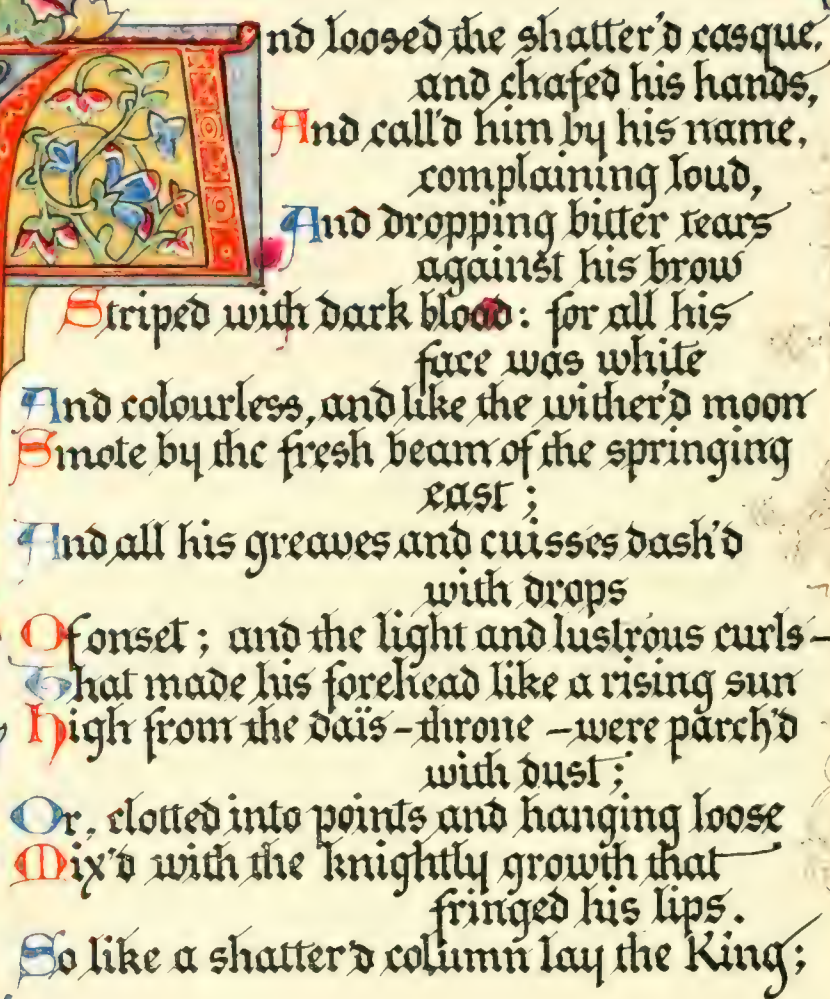 And loosed the shatter'd casque,
and chafed his hands,
And call'd him by his name,
complaining loud,
And dropping bitter tears
against his brow
Striped with dark blood: for all his
face was white
And colourless, and like the wither'd moon
Smote by the fresh beam of the springing
east;
And all his greaves and cuisses dash'd
with drops
Of onset; and the light and lustrous curls—
That made his forehead like a rising sun
High from the daïs-throne—were parch'd
with dust;
Or, clotted into points and hanging loose
Mix'd with the knightly growth that
fringed his lips.
So like a shatter'd column lay the King;